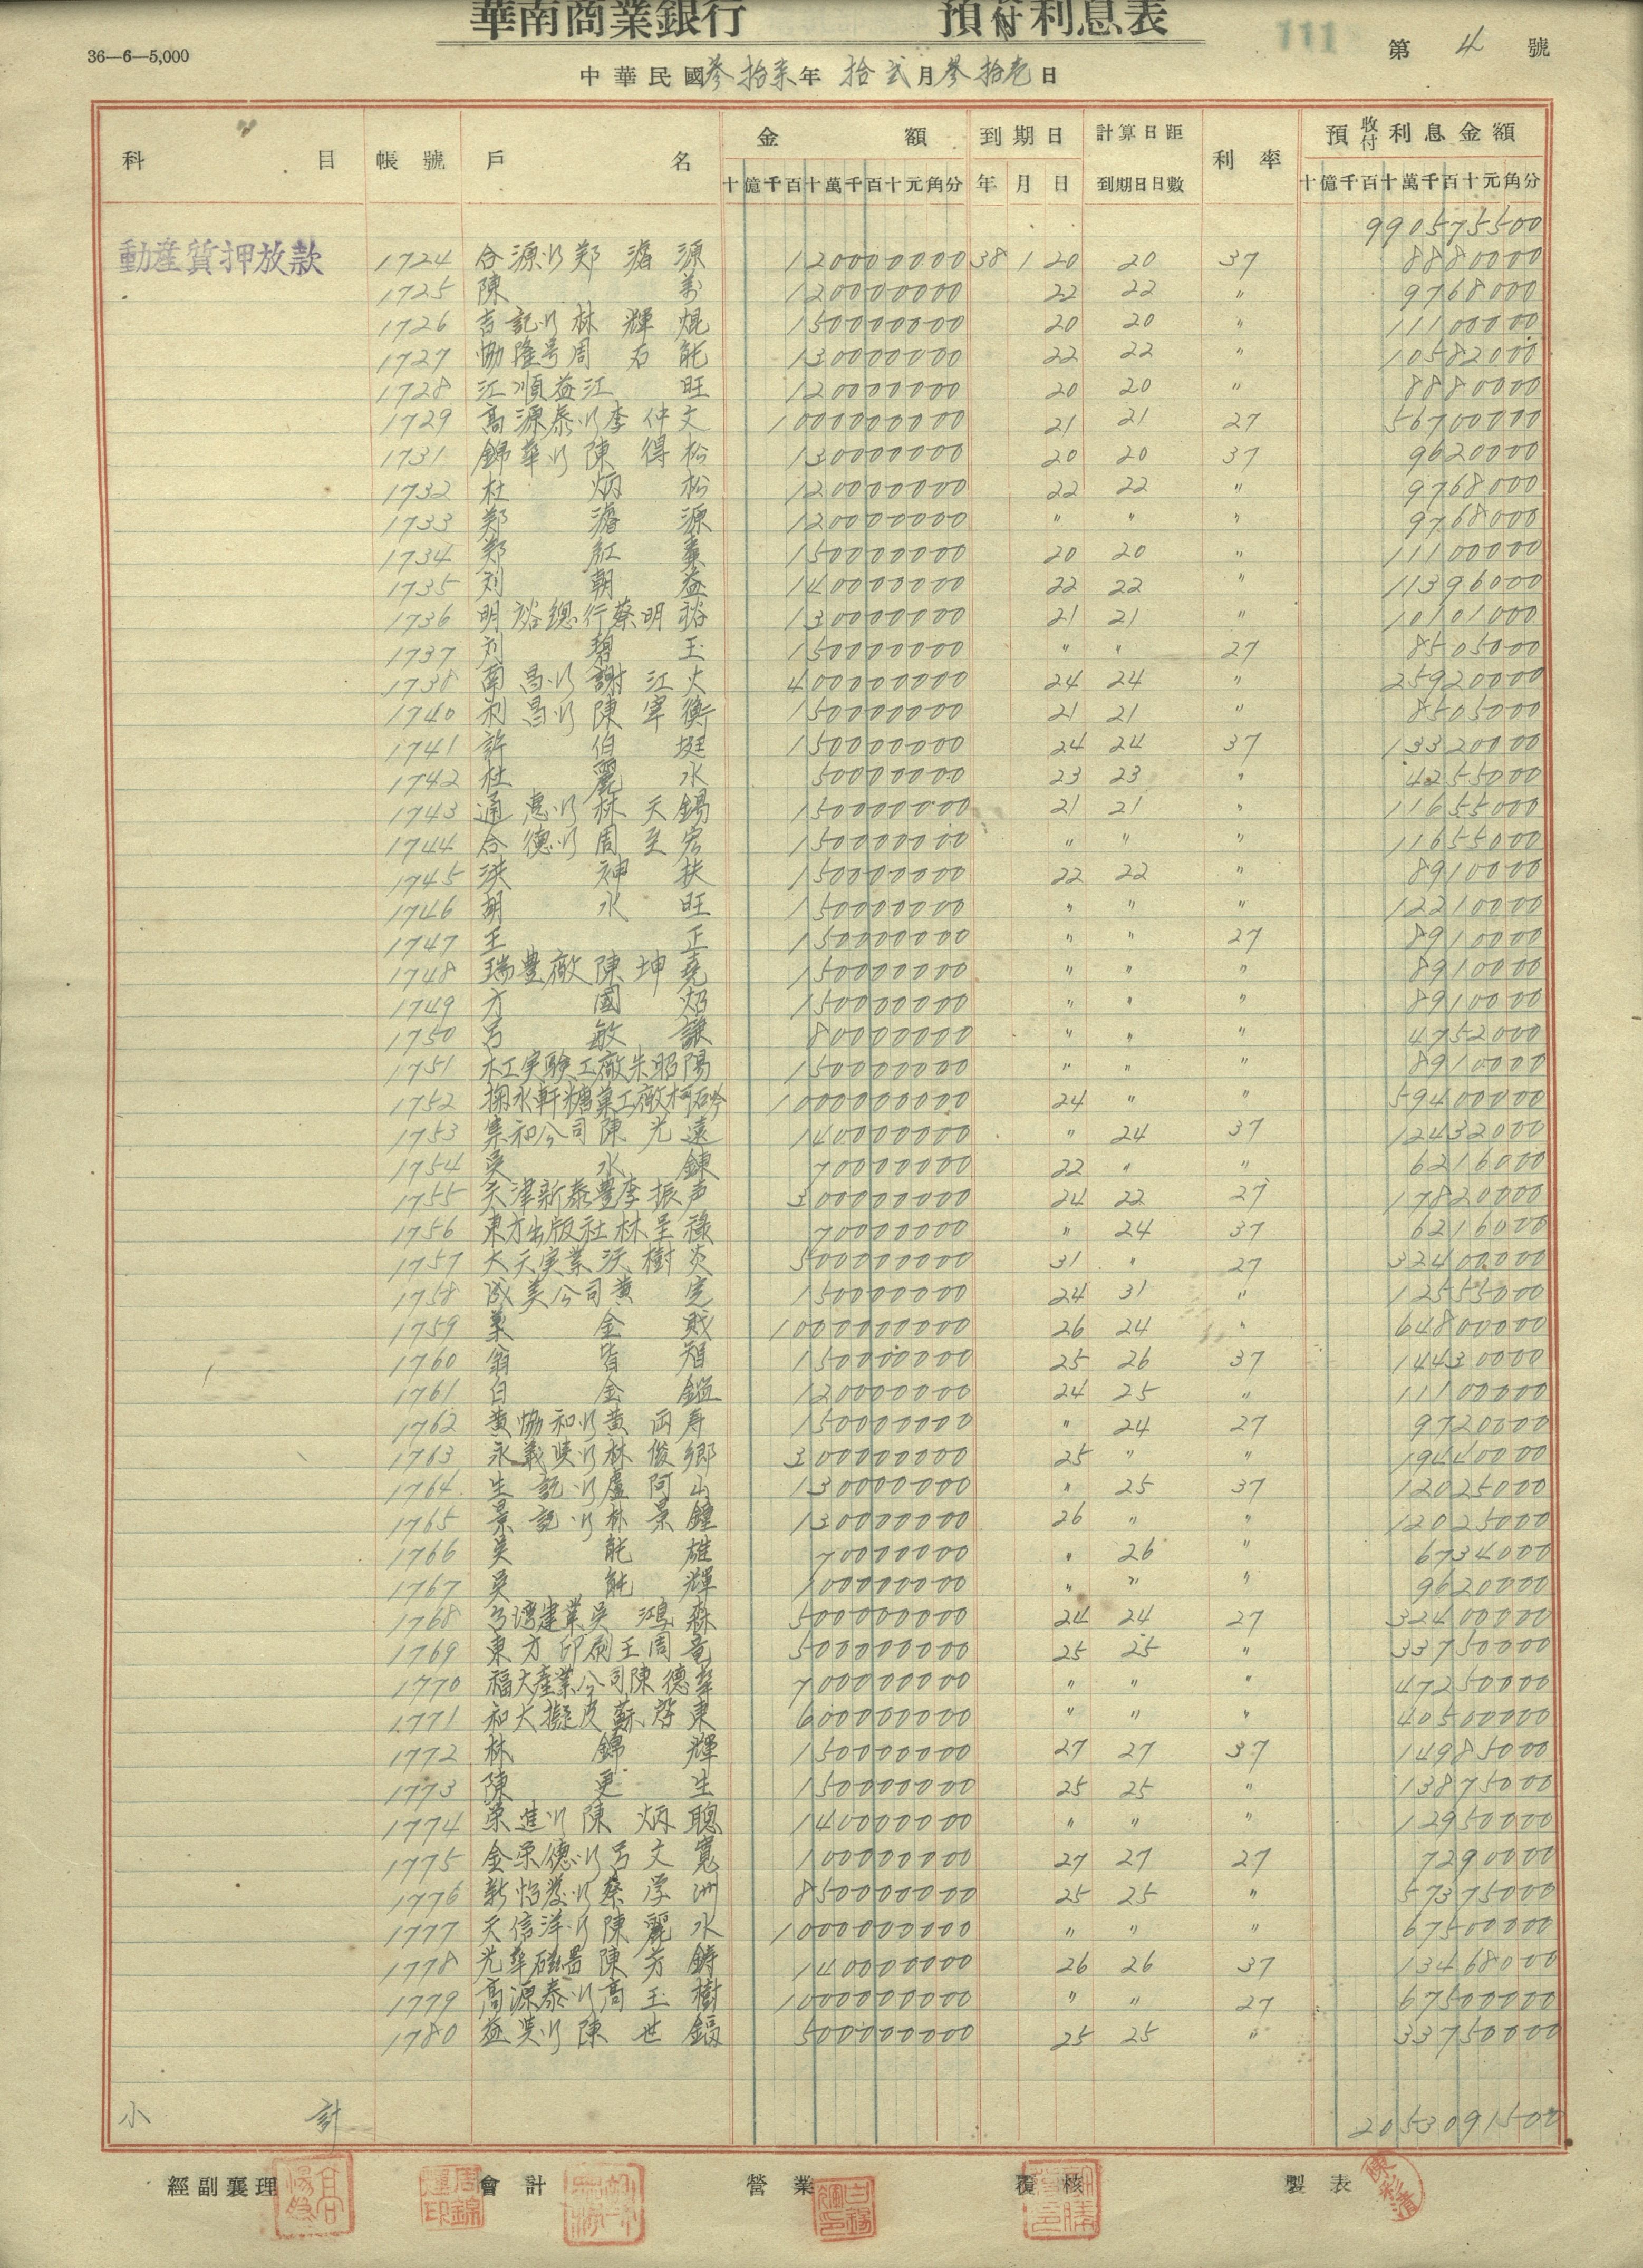 華南商業銀行 預付利息表
36—6—5,000
111
第 4 號
中華民國參拾柒年拾弍月參拾壱日
科目 帳號 戶名 金額 到期日 計算日距到期日日數 利率 預收付利息金額
十億千百十萬千百十元角分 年月日 十億千百十萬千百十元角分
990575500
動產質押放款 1724 合源行鄭 源 120000000 38 1 20 20 37 8880000
1725 陳 120000000 22 22 〃 9768000
1726 吉記行林輝焜 150000000 20 20 〃 11100000
1727 協隆号周石能 130000000 22 22 〃 10582000
1728 江順益江旺 120000000 20 20 〃 8880000
1729 高源泰行李仲文 1000000000 21 21 27 56700000
1731 錦華行陳得松 130000000 20 20 37 9620000
1732 杜炳松 120000000 22 22 〃 9768000
1733 鄭 源 120000000 〃 〃 〃 9768000
1734 鄭紅 150000000 20 20 〃 11100000
1735 刘朝益 140000000 22 22 〃 11396000
1736 明裕總行蔡明裕 130000000 21 21 〃 10101000
1737 刘碧玉 150000000 〃 〃 27 8505000
1738 南昌行謝江火 400000000 24 24 〃 25920000
1740 利昌行陳宰衡 150000000 21 21 〃 8505000
1741 許伯埏 150000000 24 24 37 13320000
1742 杜麗水 50000000 23 23 〃 4255000
1743 通惠行林天錫 150000000 21 21 〃 11655000
1744 合德行周至宏 150000000 〃 〃 〃 11655000
1745 洪神扶 150000000 22 22 〃 8910000
1746 胡水旺 150000000 〃 〃 〃 12210000
1747 王正 150000000 〃 〃 27 8910000
1748 瑞豊廠陳坤堯 150000000 〃 〃 〃 8910000
1749 方國炤 150000000 〃 〃 〃 8910000
1750 呂敏謙 80000000 〃 〃 〃 4752000
1751 木工実驗工廠朱昭陽 150000000 〃 〃 〃 8910000
1752 掬水軒糖菓工廠柯石吟 1000000000 24 〃 〃 59400000
1753 集和公司陳光遠 140000000 〃 24 37 12432000
1754 吳水鍊 70000000 22 〃 〃 6216000
1755 天津新泰豊李振声 300000000 24 22 27 17820000
1756 東方出版社林呈祿 70000000 〃 24 37 6216000
1757 大天実業 樹炎 500000000 31 〃 27 32400000
1758 成美公司黄 150000000 24 31 〃 12555000
1759 葉金 1000000000 26 24 〃 64800000
1760 翁 150000000 25 26 37 14430000
1761 白金鎰 120000000 24 25 〃 11100000
1762 黄協和行黄 寿 150000000 〃 24 27 9720000
1763 永義 行林俊鄉 300000000 25 〃 〃 19440000
1764 生記行盧阿山 130000000 〃 25 37 12025000
1765 景記行林景鐘 130000000 26 〃 〃 12025000
1766 吳能雄 70000000 〃 26 〃 6734000
1767 吳能輝 100000000 〃 〃 〃 9620000
1768 台湾建業吳鴻森 500000000 24 24 27 32400000
1769 東方印刷王周竜 500000000 25 25 〃 33750000
1770 福大產業公司陳德 700000000 〃 〃 〃 47250000
1771 和大擬皮蘇啓東 600000000 〃 〃 〃 40500000
1772 林錦輝 150000000 27 27 37 14985000
1773 陳更生 150000000 25 25 〃 13875000
1774 栄進行陳炳聰 140000000 〃 〃 〃 12950000
1775 金栄德行呂文寬 100000000 27 27 27 7290000
1776 新怡發行蔡學洲 850000000 25 25 〃 57375000
1777 天信洋行陳麗水 1000000000 〃 〃 〃 67500000
1778 光華磁器陳芳鑄 140000000 26 26 37 13468000
1779 高源泰行高玉樹 1000000000 〃 〃 27 67500000
1780 益 行陳世 500000000 25 25 〃 33750000
小計 2053091500
經副襄理 會計 營業 覆核 製表